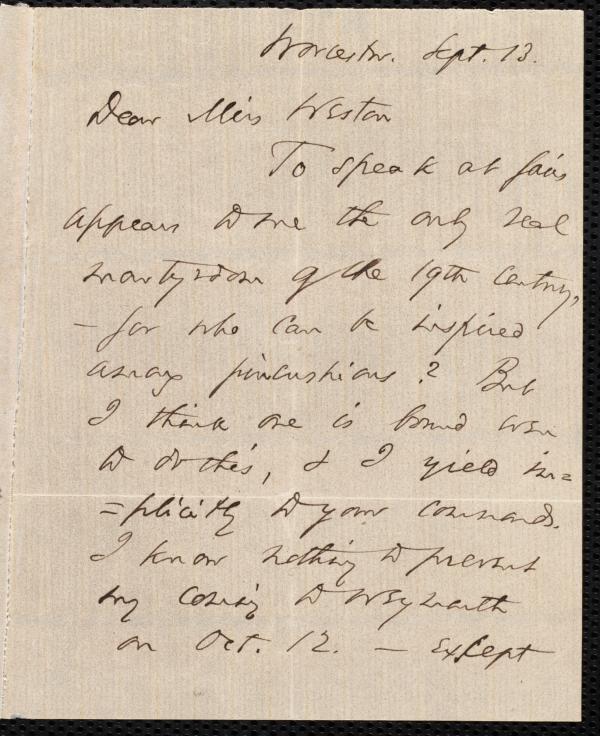 Worcester. Sept. 13.
Dear Miss Weston
To speak at fairs
appears to me the only real
martyrdom of the 19th century,
- for who can be inspired
among pincushions? But
I think one is bound even
to do this, & I yield im=
=plicitly to your commands.
I know nothing to prevent
my coming to Weymouth
on Oct. 12. — Except